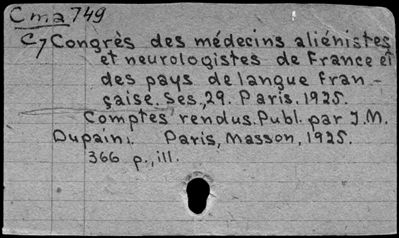 Cma 749
C7 Congrès des médecins aliénistes
et neurologistes de France et
des pays de langue fran-
çaise. Ses., 29. Paris. 1925.
Comptes rendus. Publ. par J.M.
Dupain. Paris, Masson, 1925.
366 p., ill.